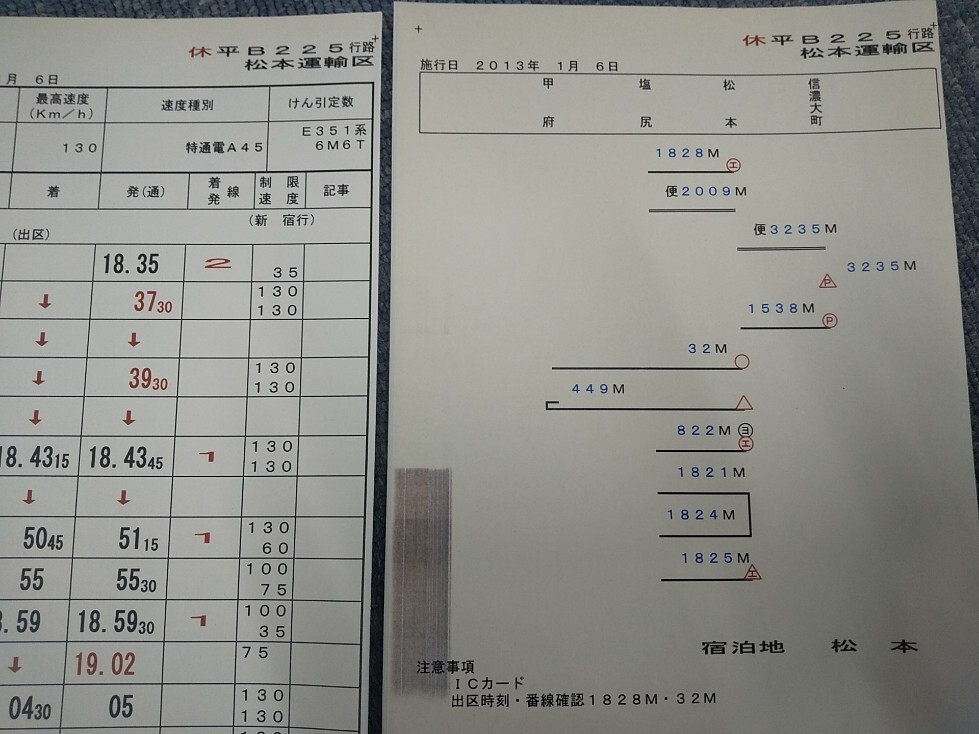 休平B225行路
松本運輸区
月 6日
最高速度
(Km/h)
速度種別
けん引定数
130
特通電A45
E351系
6M6T
着
発(通)
着発線
制限速度
記事
(出区)
(新 宿行)
18.35
2
35
↓
3730
130
130
↓
↓
↓
3930
130
130
↓
↓
18.4315
18.4345
1
130
130
↓
↓
5045
5115
1
130
60
55
5530
100
75
.59
18.5930
1
100
35
↓
19.02
75
0430
05
130
130
休平B225行路
松本運輸区
施行日 2013年 1月 6日
甲府
塩尻
松本
信濃大町
1828M
エ
便2009M
便3235M
3235M
P
1538M
P
32M
449M
822M
ヨ
エ
1821M
1824M
1825M
エ
宿泊地 松本
注意事項
ICカード
出区時刻・番線確認1828M・32M